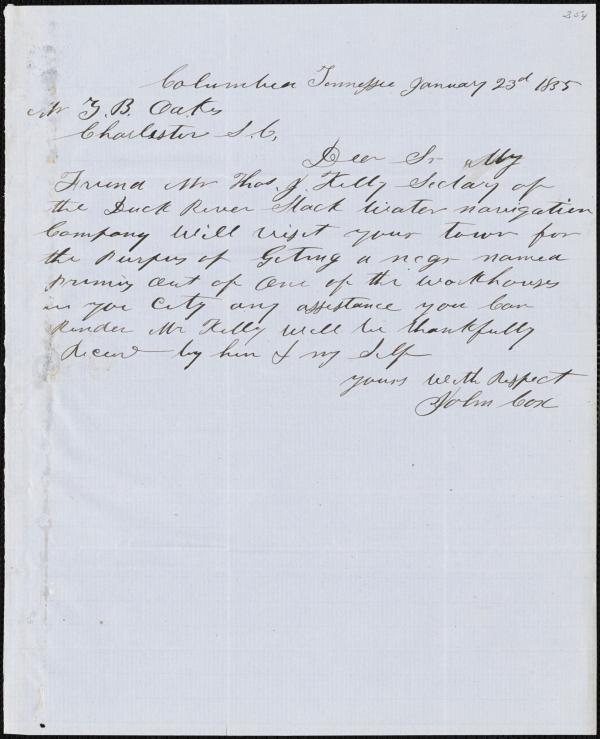 254
Columbia Tennessee January 23d 1855
Mr Z. B. Oakes
Charleston S. C,
Dear Sr My
Friend Mr Thos. J. Kelly Sectary of
the Duck River Slack Water navigation
Company Will visit your town for
the Purpus of Geting a negr named
Primis out of one of the workhouses
in you City any assistance you Can
Render Mr Kelly will be thankfully
Receivd by him & my Self
yours with Respect
John Cox